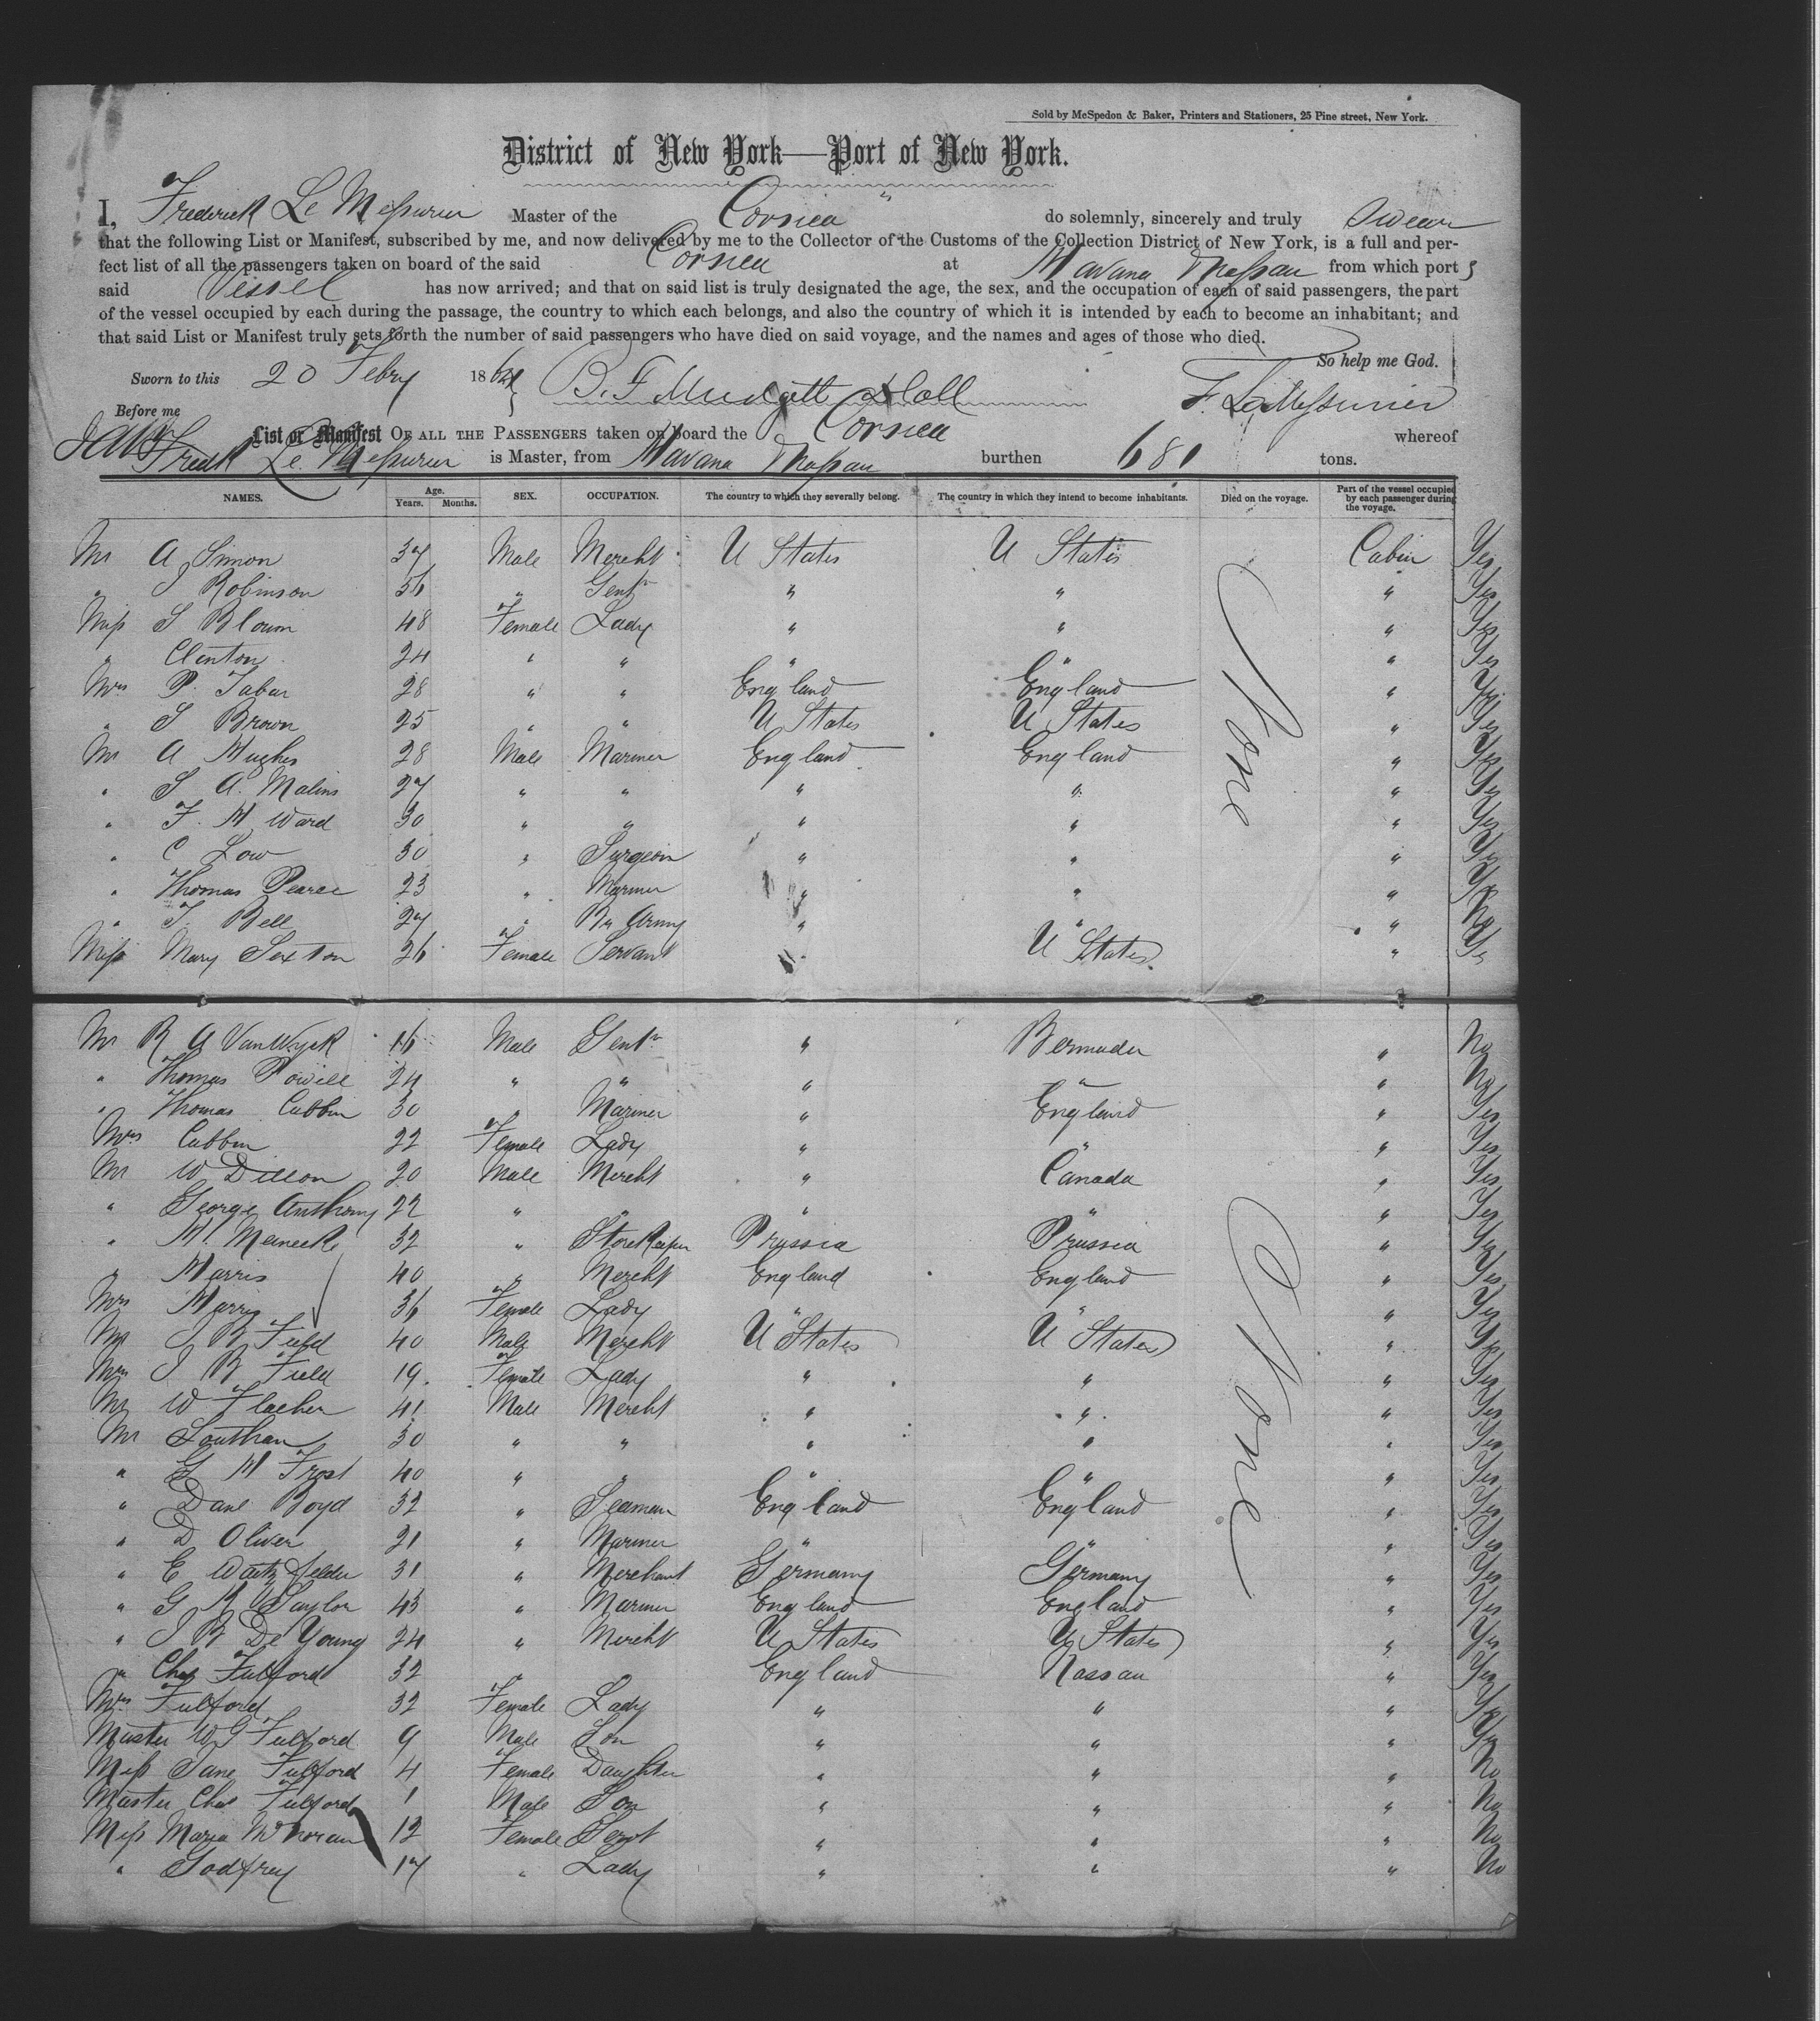 Sold by McSpedon & Baker, Printers and Stationers, 25 Pine street, New York.
District of New York—Port of New York.
I, Frederick Le Messurier Master of the Corsica do solemnly, sincerely and truly swear
that the following List or Manifest, subscribed by me, and now delivered by me to the Collector of the Customs of the Collection District of New York, is a full and per-
fect list of all the passengers taken on board of the said Corsica at Havana & Nassau from which port s
said Vessel has now arrived; and that on said list is truly designated the age, the sex, and the occupation of each of said passengers, the part
of the vessel occupied by each during the passage, the country to which each belongs, and also the country of which it is intended by each to become an inhabitant; and
that said List or Manifest truly sets forth the number of said passengers who have died on said voyage, and the names and ages of those who died.
So help me God.
Sworn to this 20 Febry 1864 F. Le Messurier
Before me
List or Manifest OF ALL THE PASSENGERS taken on board the Corsica whereof
Fredk Le Messurier is Master, from Havana & Nassau burthen 681 tons.
NAMES. Age. Years. Months. SEX. OCCUPATION. The country to which they severally belong. The country in which they intend to become inhabitants. Died on the voyage. Part of the vessel occupied by each passenger during the voyage.
Mr A Simon 37 Male Mercht U States U States Cabin Yes
" J Robinson 56 " Gentn " " " Yes
Miss S Blown 48 Female Lady " " " Yes
" Clenton 24 " " " " " Yes
Mrs P. Tabar 28 " " England England " Yes
" S Brown 25 " " U States U States " Yes
Mr A Hughes 28 Male Mariner England England " Yes
" S A. Malins 27 " " " " " Yes
" F. H Ward 30 " " " " " Yes
" C Low 30 " Surgeon " " " Yes
" Thomas Pearce 23 " Mariner " " " Yes
" T. Bell 27 " Br Army " " " No
Miss Mary Sexton 26 Female Servant " U States " Yes
None
Mr R A VanWyck 16 Male Gentn " Bermuda " No
" Thomas Powell 24 " " " " " No
" Thomas Cubbin 30 " Mariner " England " Yes
Mrs Cubbin 22 Female Lady " " " Yes
Mr W Dillon 20 Male Mercht " Canada " Yes
" George Anthony 22 " " " " " Yes
" H. Meinecke 32 " Storekeeper Prussia Prussia " Yes
" Harris 40 " Mercht England England " Yes
Mrs Harris 36 Female Lady " " " Yes
Mr J R Field 40 Male Mercht U States U States " Yes
Mrs J R Field 19 Female Lady " " " Yes
Mr W Flacher 41 Male Mercht " " " Yes
Mr Southan 30 " " " " " Yes
" G H Frost 40 " " " " " Yes
" Dane Boyd 32 " Seaman England England " Yes
" D Oliver 21 " Mariner " " " Yes
" E Waitzfelder 31 " Merchant Germany Germany " Yes
" G Taylor 43 " Mariner England England " Yes
" J R De Young 24 " Mercht U States U States " Yes
" Chas Fulford 32 England Nassau " Yes
Mrs Fulford 32 Female Lady " " " Yes
Master W G Fulford 9 Male Son " " " Yes
Miss Jane Fulford 4 Female Daughter " " " No
Master Chas Fulford 1 Male Son " " " No
Miss Maria McNoran 12 Female Servt " " " No
" Godfrey 17 " Lady " " " No
None